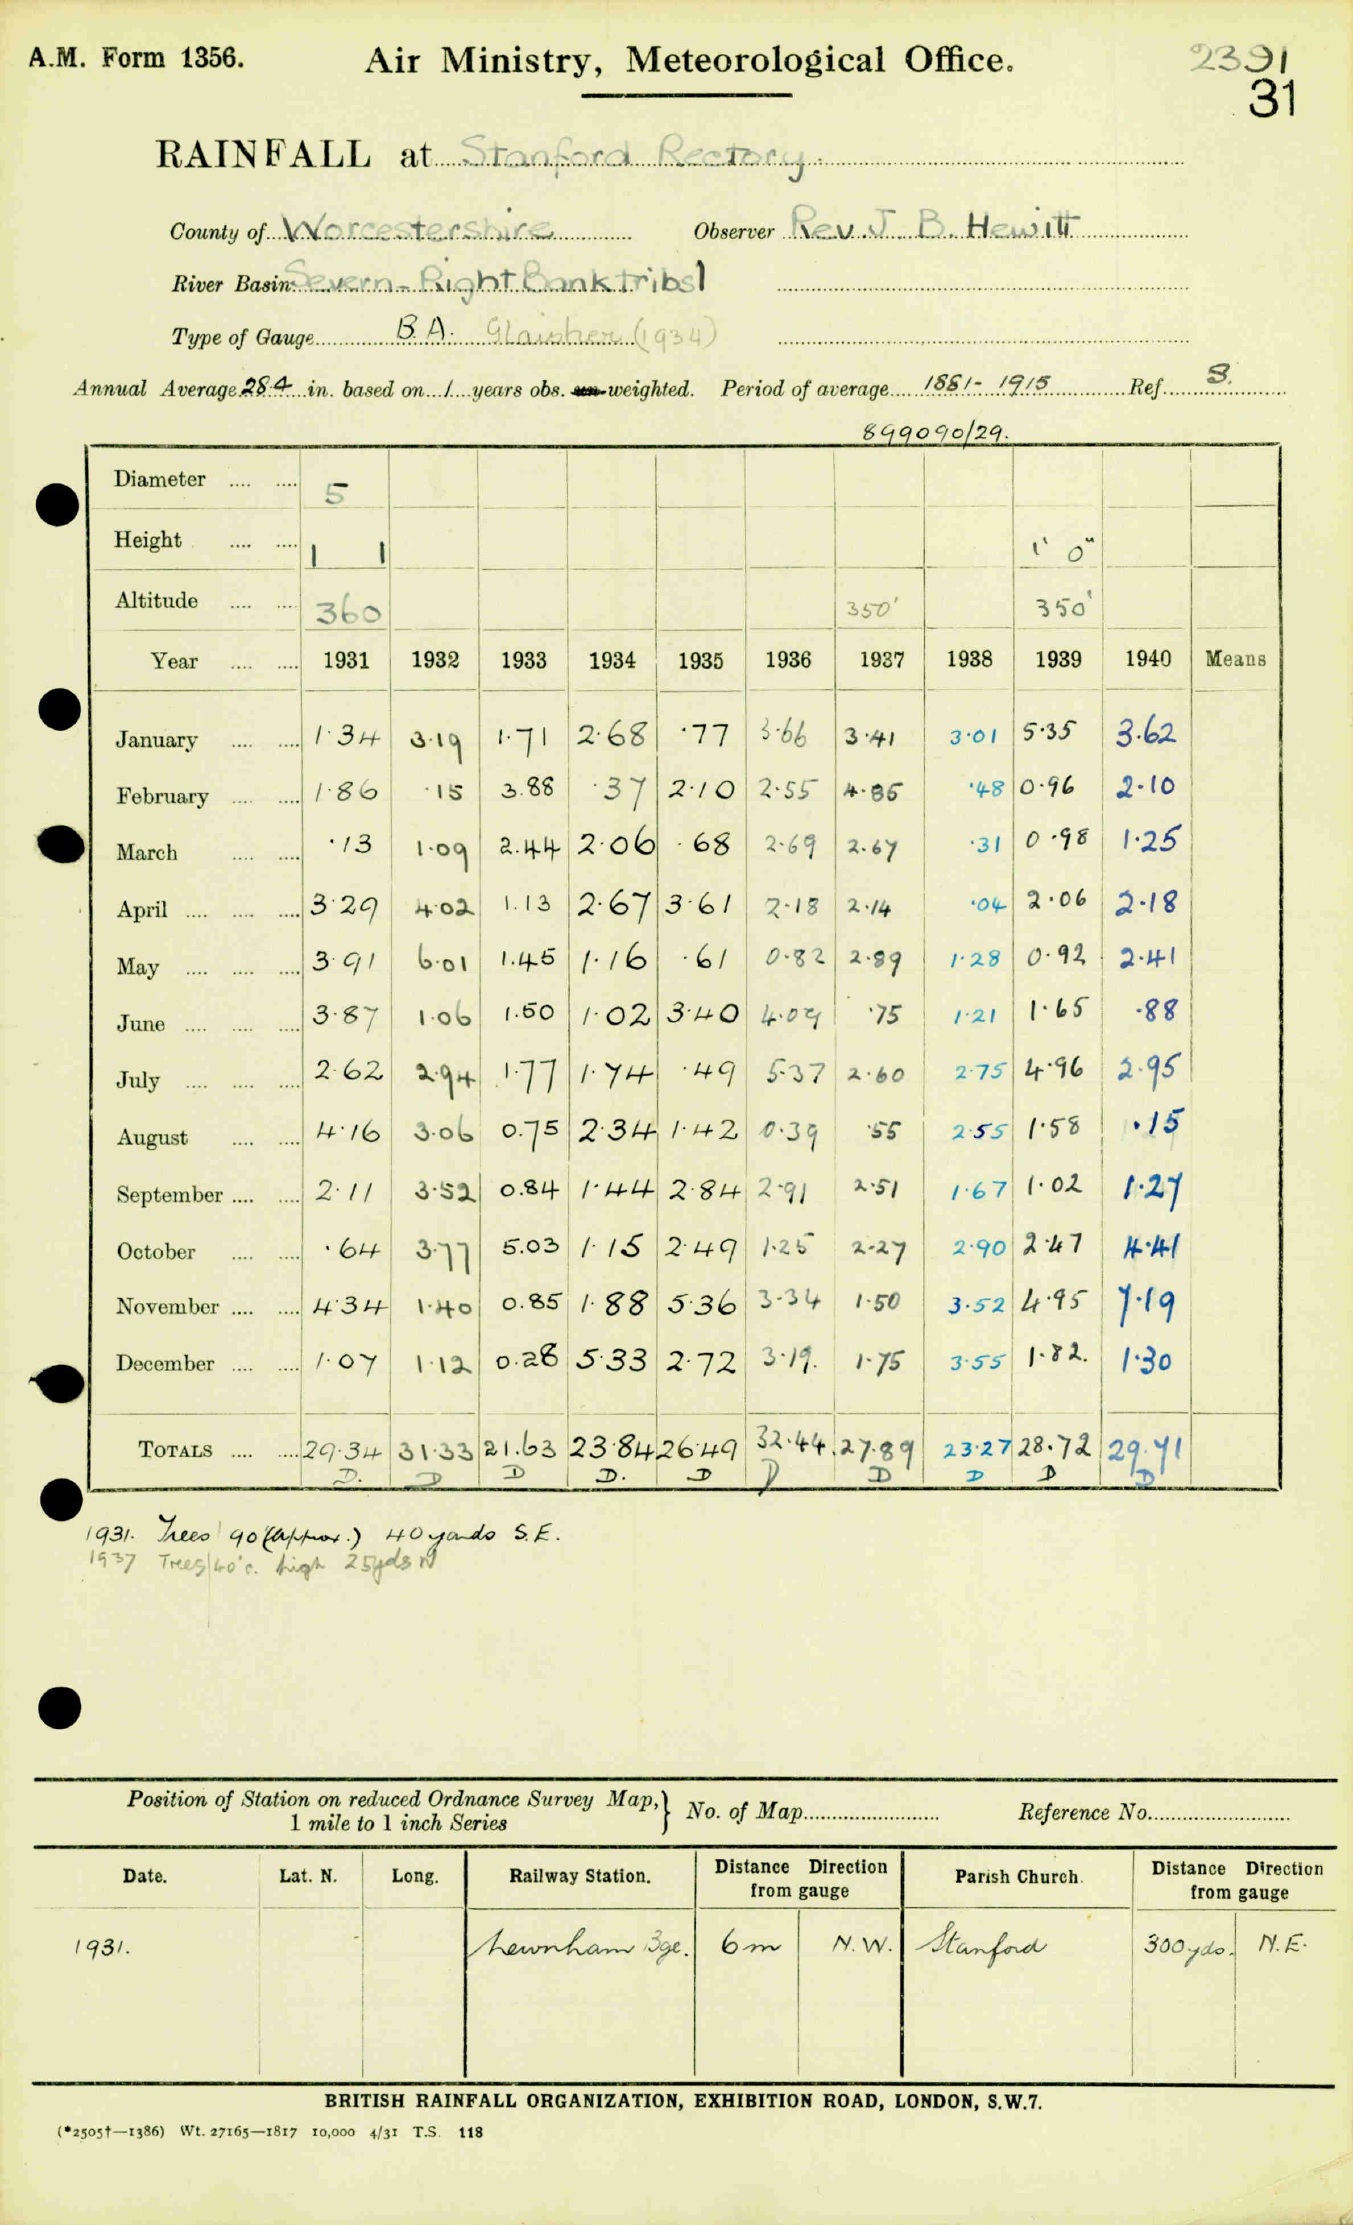 A.M. Form 1356.
Air Ministry, Meteorological Office.
2391
31
RAINFALL at Stanford Rectory.
County of Worcestershire Observer Rev. J. B. Hewitt
River Basin Severn - Right Bank tribs 1
Type of Gauge B.A. Glaisher (1934)
Annual Average 28.4 in. based on 1 years obs. un-weighted. Period of average 1881-1915 Ref. S.
899090/29.
Diameter 5
Height 1 1 1' 0"
Altitude 360 350' 350'
Year 1931 1932 1933 1934 1935 1936 1937 1938 1939 1940 Means
January 1.34 3.19 1.71 2.68 .77 3.66 3.41 3.01 5.35 3.62
February 1.86 .15 3.88 .37 2.10 2.55 4.85 .48 0.96 2.10
March .13 1.09 2.44 2.06 .68 2.69 2.67 .31 0.98 1.25
April 3.29 4.02 1.13 2.67 3.61 2.18 2.14 .04 2.06 2.18
May 3.91 6.01 1.45 1.16 .61 0.82 2.89 1.28 0.92 2.41
June 3.87 1.06 1.50 1.02 3.40 4.09 .75 1.21 1.65 .88
July 2.62 2.94 1.77 1.74 .49 5.37 2.60 2.75 4.96 2.95
August 4.16 3.06 0.75 2.34 1.42 0.39 .55 2.55 1.58 .15
September 2.11 3.52 0.84 1.44 2.84 2.91 2.51 1.67 1.02 1.27
October .64 3.77 5.03 1.15 2.49 1.25 2.27 2.90 2.47 4.41
November 4.34 1.40 0.85 1.88 5.36 3.34 1.50 3.52 4.95 7.19
December 1.07 1.12 0.28 5.33 2.72 3.19. 1.75 3.55 1.82. 1.30
TOTALS 29.34 31.33 21.63 23.84 26.49 32.44 27.89 23.27 28.72 29.71
D. D D D. D D D D D D
1931. Trees 90 (approx.) 40 yards S.E.
1937 Trees 40' c. high 25yds N
Position of Station on reduced Ordnance Survey Map, 1 mile to 1 inch Series } No. of Map Reference No.
Date. Lat. N. Long. Railway Station. Distance Direction from gauge Parish Church. Distance Direction from gauge
1931. Newnham Bge. 6m N.W. Stanford 300yds. N.E.
BRITISH RAINFALL ORGANIZATION, EXHIBITION ROAD, LONDON, S.W.7.
(*2505†—1386) Wt. 27165—1817 10,000 4/31 T.S. 118